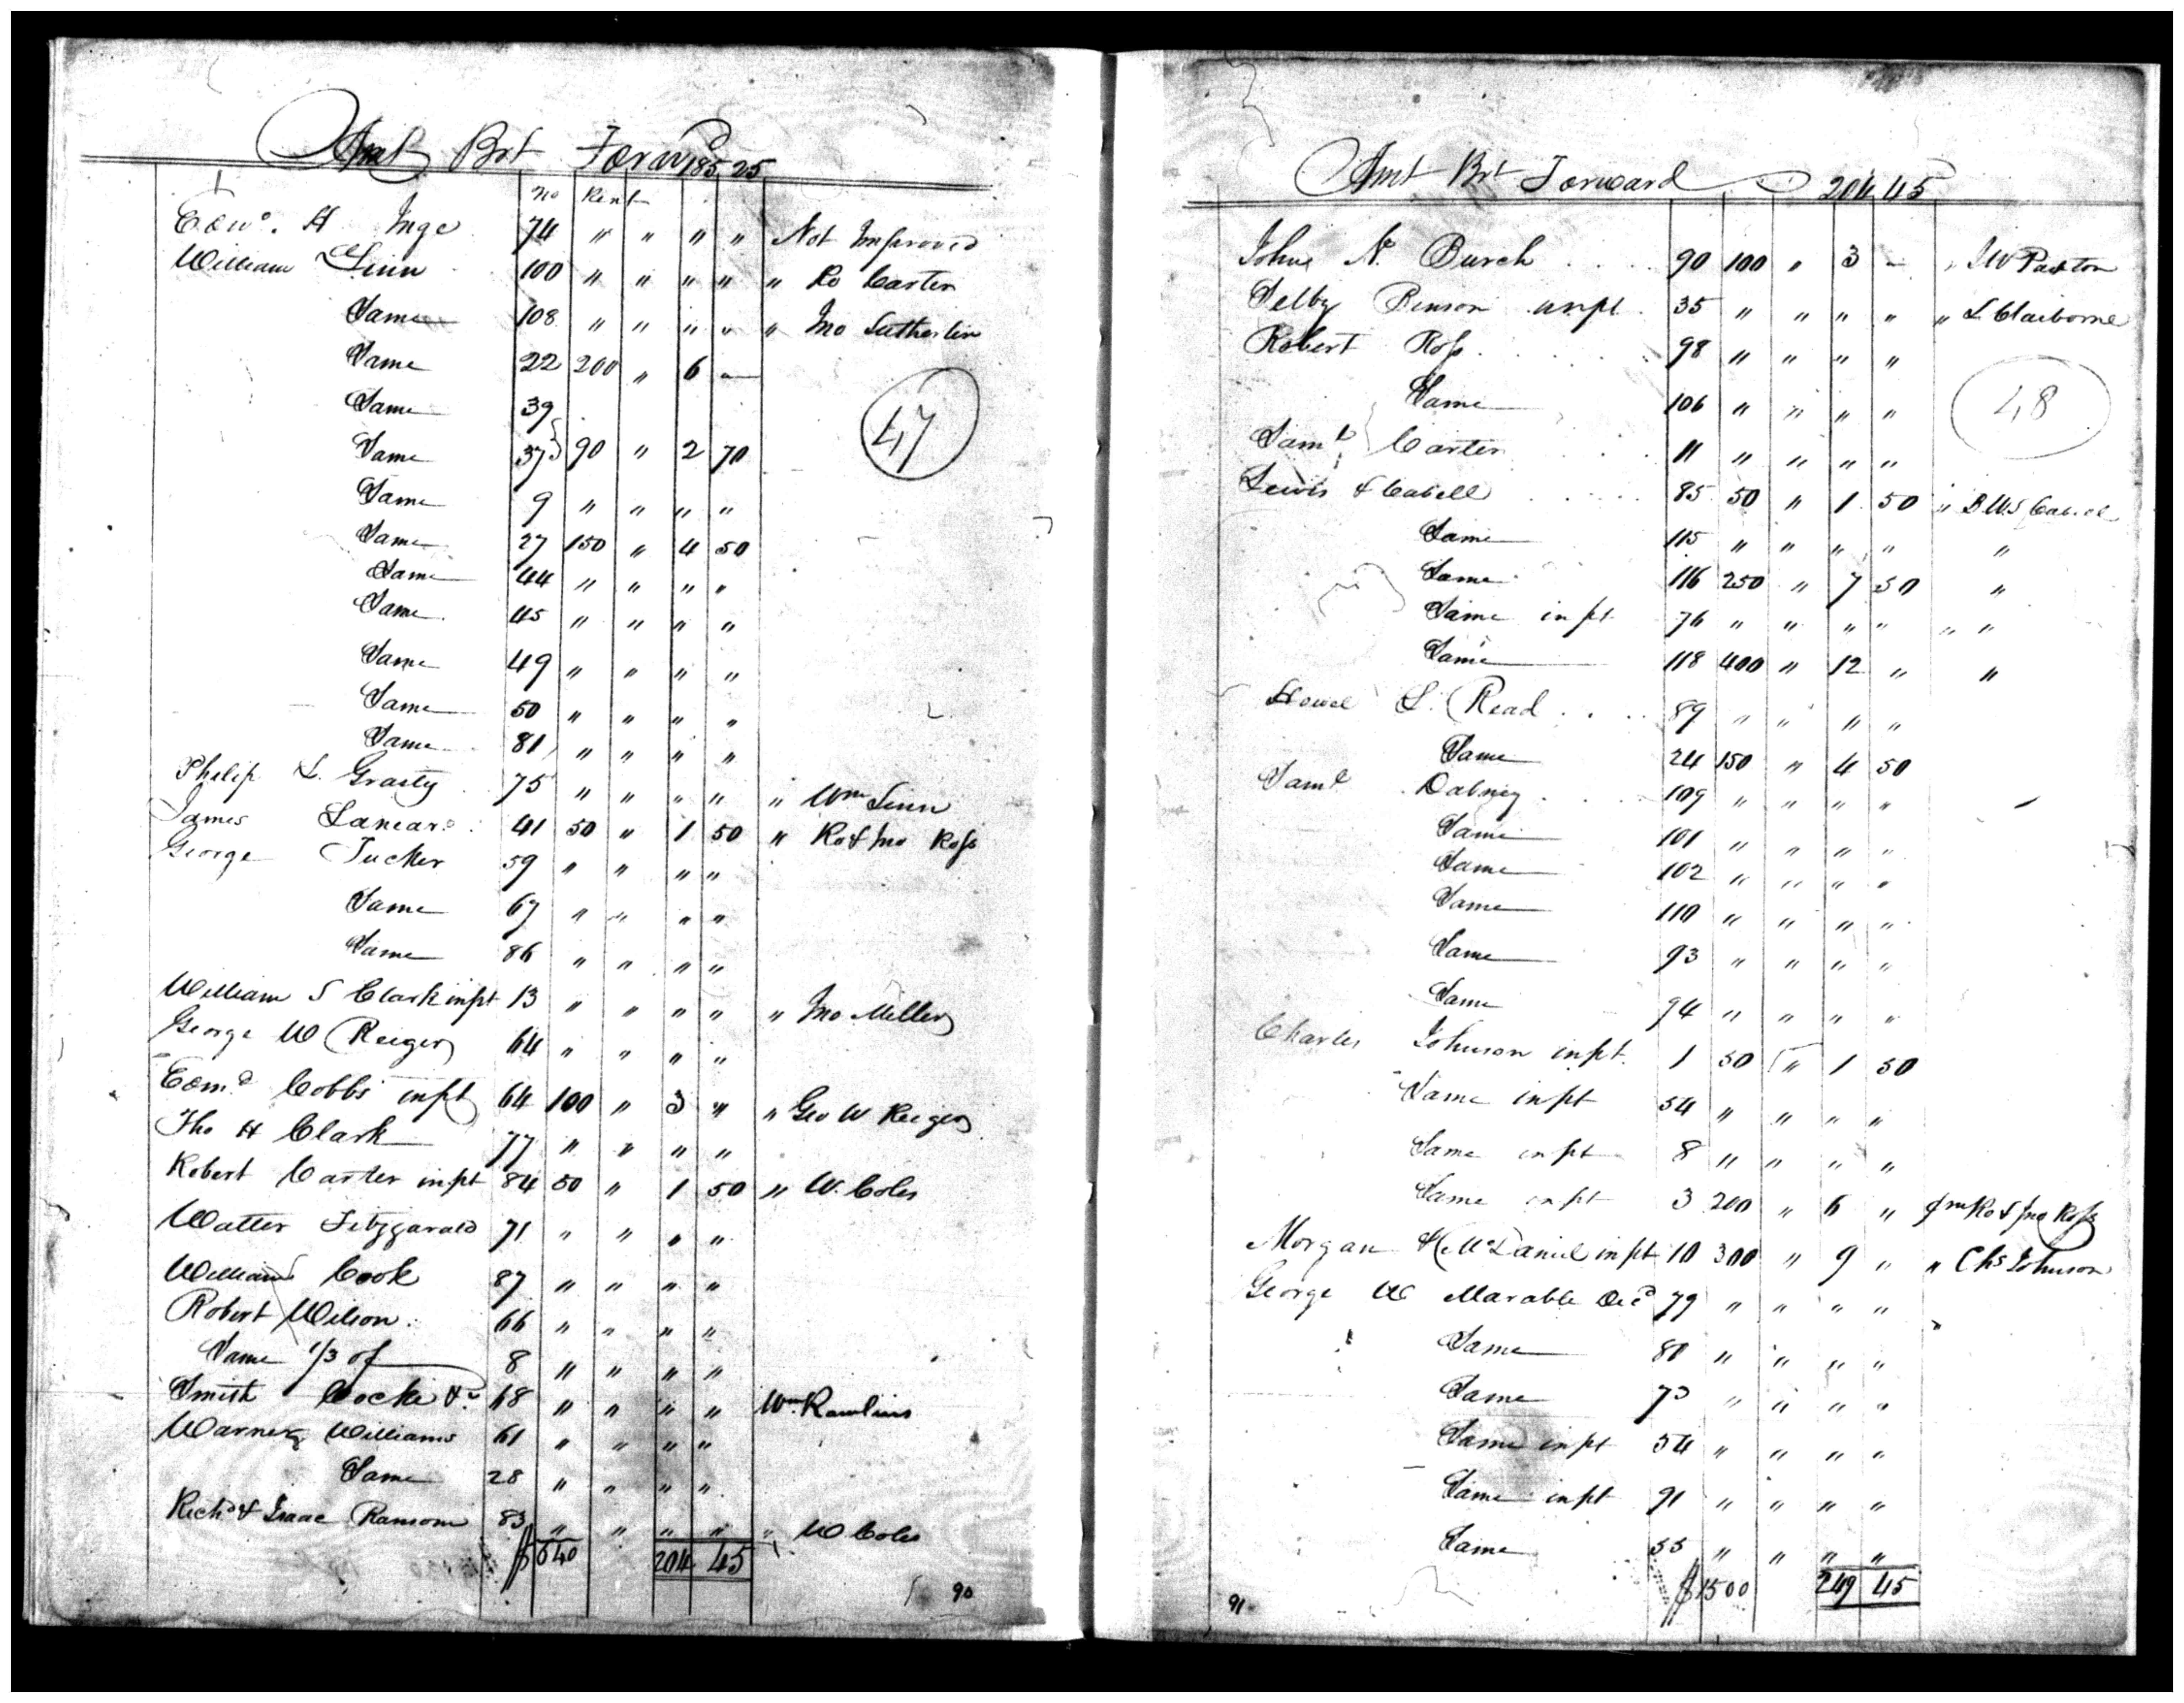 Amt Brt Forwd 185 25
No Rent
Edwd. H Inge 74 " " " " Not Improved
William Linn 100 " " " " " Ro Carter
Same 108 " " " " " Jno Sutherlin
Same 22 200 " 6 —
Same 39
47
Same 37 } 90 " 2 70
Same 9 " " " "
Same 27 150 " 4 50
Same 44 " " " "
Same 45 " " " "
Same 49 " " " "
Same 50 " " " "
Same 81 " " " "
Philip L. Grasty 75 " " " " " Wm Linn
James Lanear 41 50 " 1 50 " Ro & Jno Ross
George Tucker 59 " " " "
Same 67 " " " "
Same 86 " " " "
William S Clark inpt 13 " " " " " Jno Miller
George W Reiger 64 " " " "
Edmd Cobbs inpt 64 100 " 3 " " Geo W Reiger
Tho H Clark 77 " " " "
Robert Carter inpt 84 50 " 1 50 " W. Coles
Walter Fitzgarald 71 " " " "
William Cook 87 " " " "
Robert Wilson 66 " " " "
Same 1/3 of 8 " " " "
Smith Cocke &c 68 " " " " Wm. Rawlins
Warner Williams 61 " " " "
Same 28 " " " "
Richd & Isaac Ransom 83 " " " " " W Coles
$ 640 204 45
90
Amt Brt Forward 204 45
John N. Burch 90 100 " 3 — " J W Paxton
Selby Benson unpt 35 " " " " " L Claiborne
Robert Ross 98 " " " "
Same 106 " " " "
48
Saml Carter 11 " " " "
Lewis & Cabell 85 50 " 1 50 " B. W. S Cabell
Same 115 " " " " "
Same 116 250 " 7 50 "
Same inpt 76 " " " " " "
Same 118 400 " 12 " "
Howel L. Read 89 " " " "
Same 24 150 " 4 50
Saml Dabney 109 " " " "
Same 101 " " " "
Same 102 " " " "
Same 110 " " " "
Same 93 " " " "
Same 94 " " " "
Charles Johnson inpt 1 50 " 1 50
Same inpt 54 " " " "
Same inpt 8 " " " "
Same inpt 3 200 " 6 " fm Ro & Jno Ross
Morgan & McDaniel inpt 10 300 " 9 " " Chs Johnson
George W Marable Decd 79 " " " "
Same 80 " " " "
Same 73 " " " "
Same inpt 54 " " " "
Same inpt 91 " " " "
Same 55 " " " "
$ 1500 249 45
91